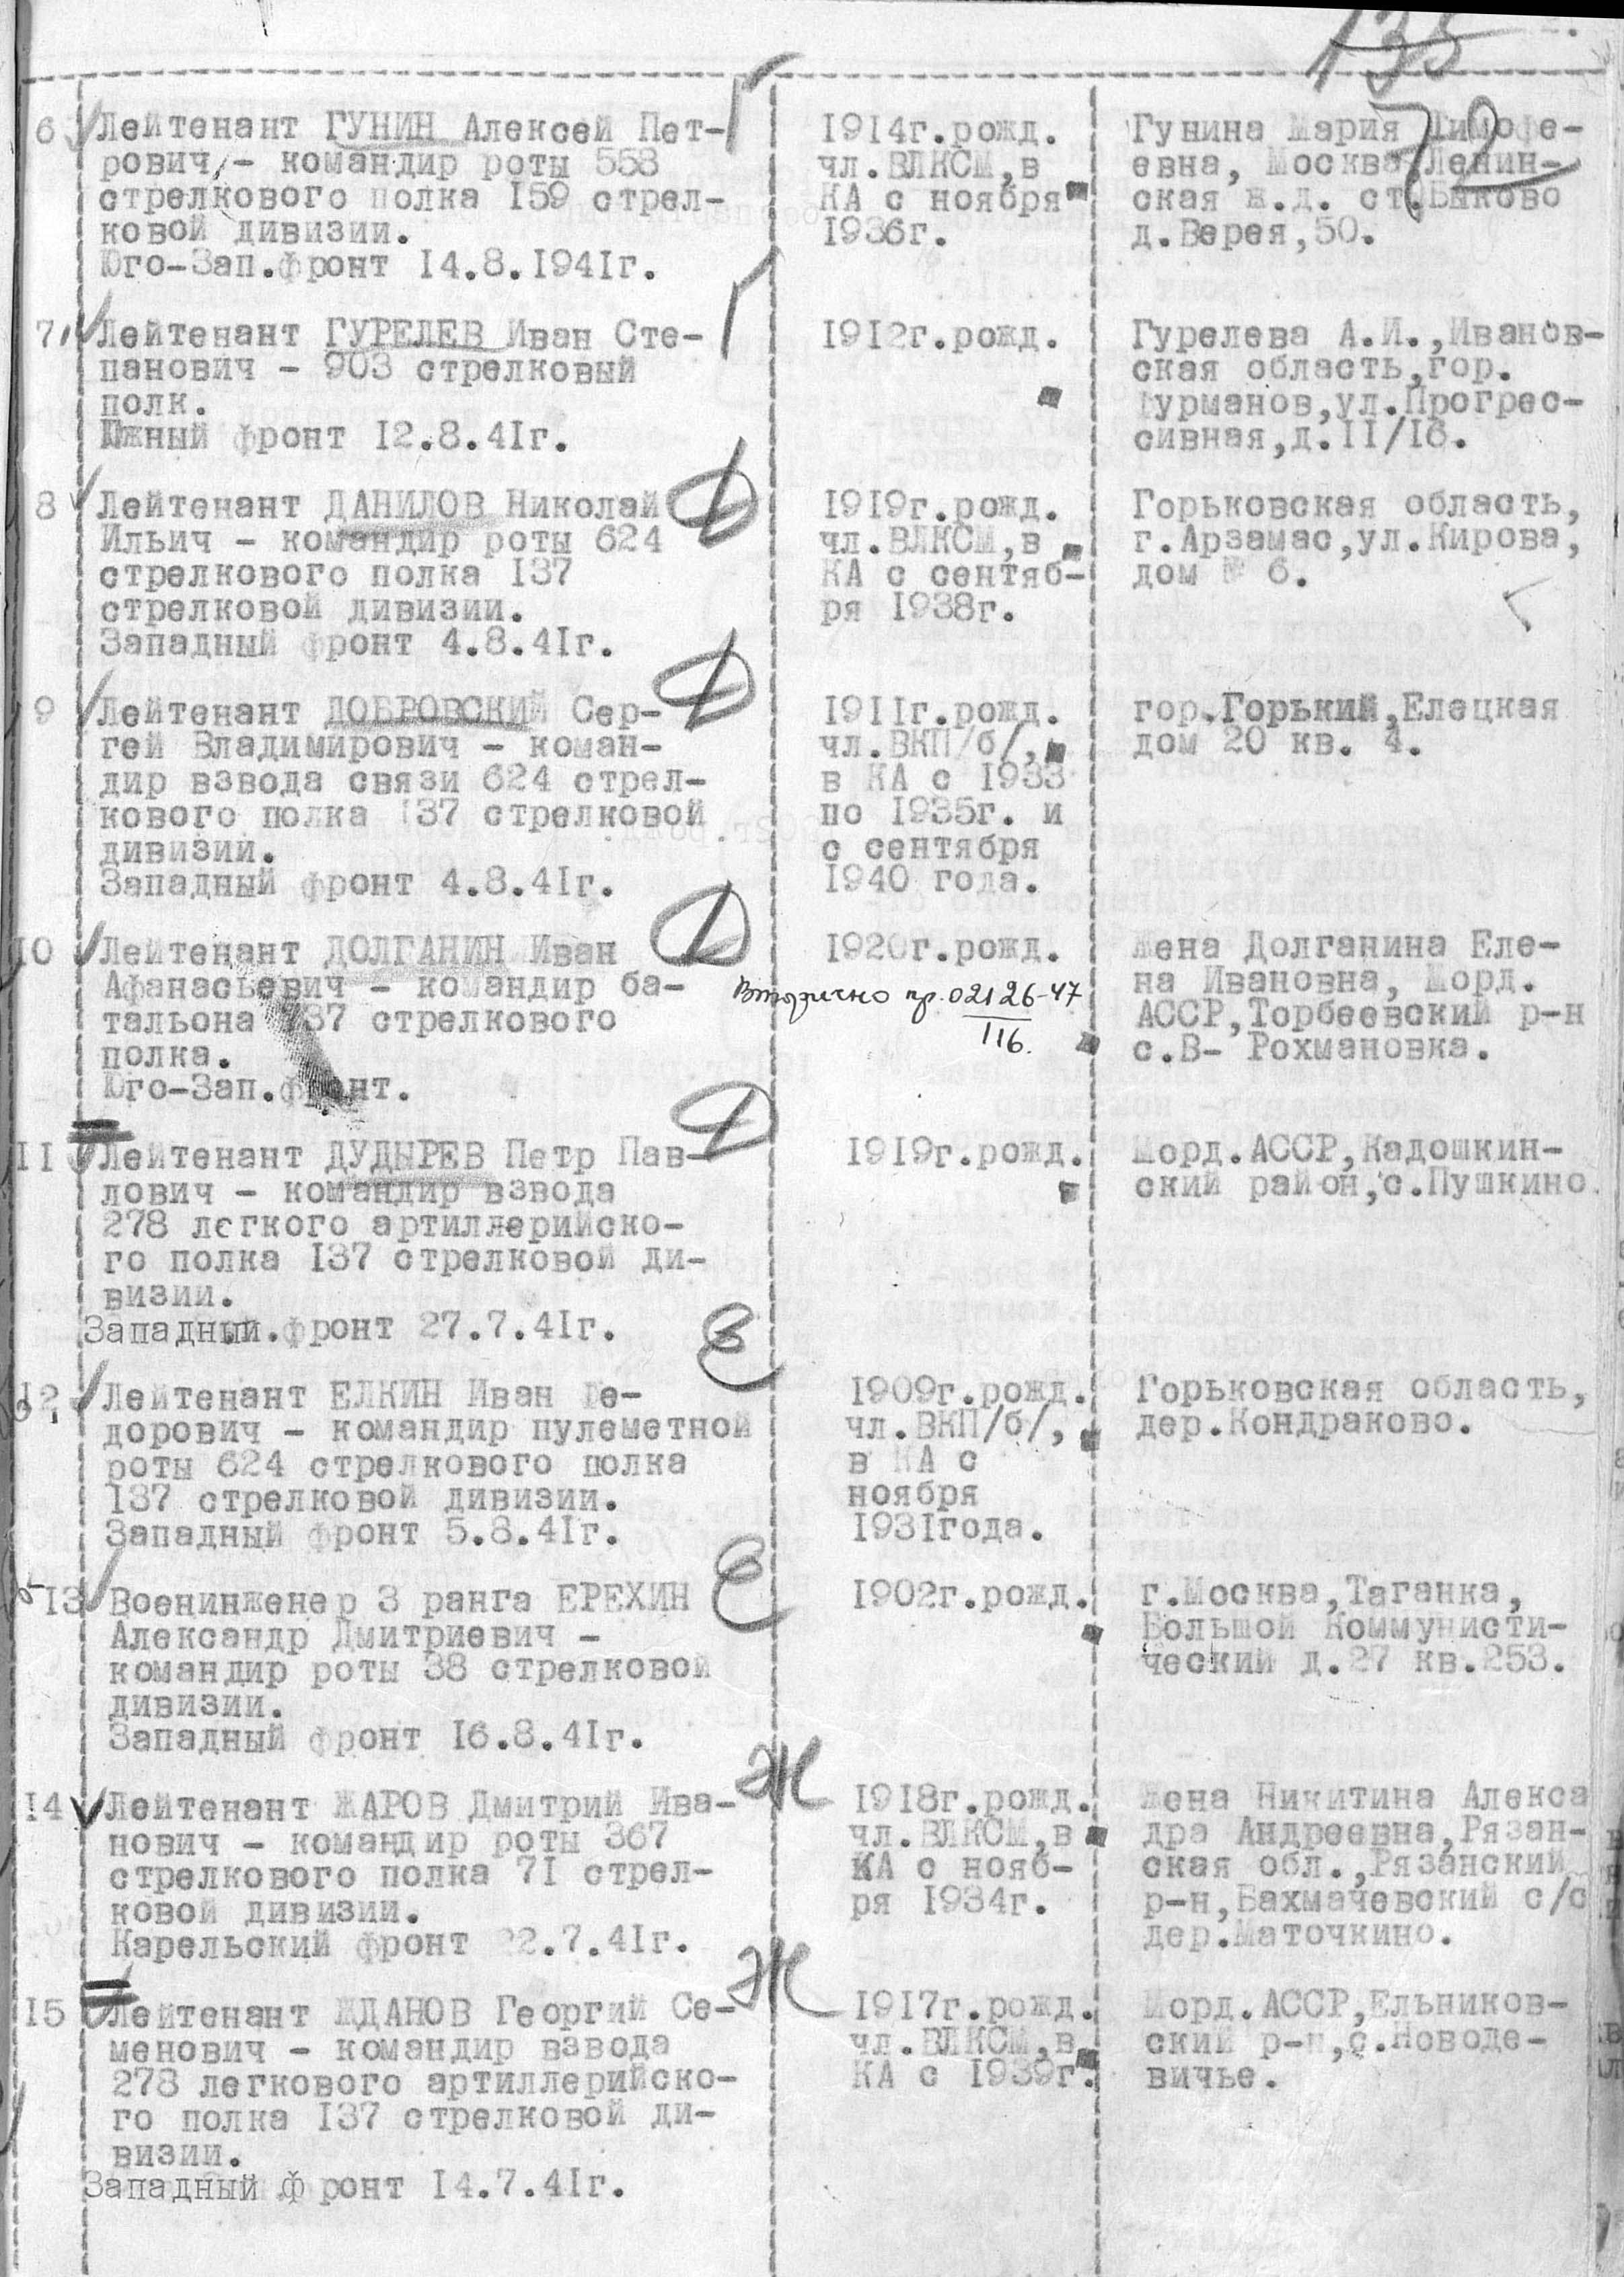 135
72
6 Лейтенант ГУНИН Алексей Пет-
рович, - командир роты 558
стрелкового полка 159 стрел-
ковой дивизии.
Юго-Зап.фронт 14.8.1941г.
1914г.рожд.
чл.ВЛКСМ,в
КА с ноября
1936г.
Гунина Мария Тимофе-
евна, Москва, Ленин-
ская ж.д. ст.Быково
д.Верея,50.
7 Лейтенант ГУРЕЛЕВ Иван Сте-
панович - 903 стрелковый
полк.
Южный фронт 12.8.41г.
1912г.рожд.
Гурелева А.И.,Иванов-
ская область,гор.
Фурманов,ул.Прогрес-
сивная,д.11/16.
8 Лейтенант ДАНИЛОВ Николай
Ильич - командир роты 624
стрелкового полка 137
стрелковой дивизии.
Западный фронт 4.8.41г.
1919г.рожд.
чл.ВЛКСМ,в
КА с сентяб-
ря 1938г.
Горьковская область,
г.Арзамас,ул.Кирова,
дом № 6.
9 Лейтенант ДОБРОВСКИЙ Сер-
гей Владимирович - коман-
дир взвода связи 624 стрел-
кового полка 137 стрелковой
дивизии.
Западный фронт 4.8.41г.
1911г.рожд.
чл.ВКП/б/,
в КА с 1933
по 1935г. и
с сентября
1940 года.
гор.Горький,Елецкая
дом 20 кв. 4.
10 Лейтенант ДОЛГАНИН Иван
Афанасьевич - командир ба-
тальона 37 стрелкового
полка.
Юго-Зап.фронт.
1920г.рожд.
Вторично пр.02126-47
116.
Жена Долганина Еле-
на Ивановна, Морд.
АССР,Торбеевский р-н
с.В- Рохмановка.
11 Лейтенант ДУДЫРЕВ Петр Пав-
лович - командир взвода
278 легкого артиллерийско-
го полка 137 стрелковой ди-
визии.
Западный.фронт 27.7.41г.
1919г.рожд.
Морд.АССР,Кадошкин-
ский район,с.Пушкино.
Е
12 Лейтенант ЕЛКИН Иван Фе-
дорович - командир пулеметной
роты 624 стрелкового полка
137 стрелковой дивизии.
Западный фронт 5.8.41г.
1909г.рожд.
чл.ВКП/б/,
в КА с
ноября
1931года.
Горьковская область,
дер.Кондраково.
Е
13 Военинженер 3 ранга ЕРЕХИН
Александр Дмитриевич -
командир роты 38 стрелковой
дивизии.
Западный фронт 16.8.41г.
1902г.рожд.
г.Москва,Таганка,
Большой Коммунисти-
ческий д.27 кв.253.
Ж
14 Лейтенант ЖАРОВ Дмитрий Ива-
нович - командир роты 367
стрелкового полка 71 стрел-
ковой дивизии.
Карельский фронт 22.7.41г.
1918г.рожд.
чл.ВЛКСМ,в
КА с нояб-
ря 1934г.
Жена Никитина Алекса
дра Андреевна,Рязан-
ская обл.,Рязанский
р-н,Вахмачевский с/с
дер.Маточкино.
Ж
15 Лейтенант ЖДАНОВ Георгий Се-
менович - командир взвода
278 легкового артиллерийско-
го полка 137 стрелковой ди-
визии.
Западный фронт 14.7.41г.
1917г.рожд.
чл.ВЛКСМ,в
КА с 1939г.
Морд.АССР,Ельников-
ский р-н,с.Новоде-
вичье.